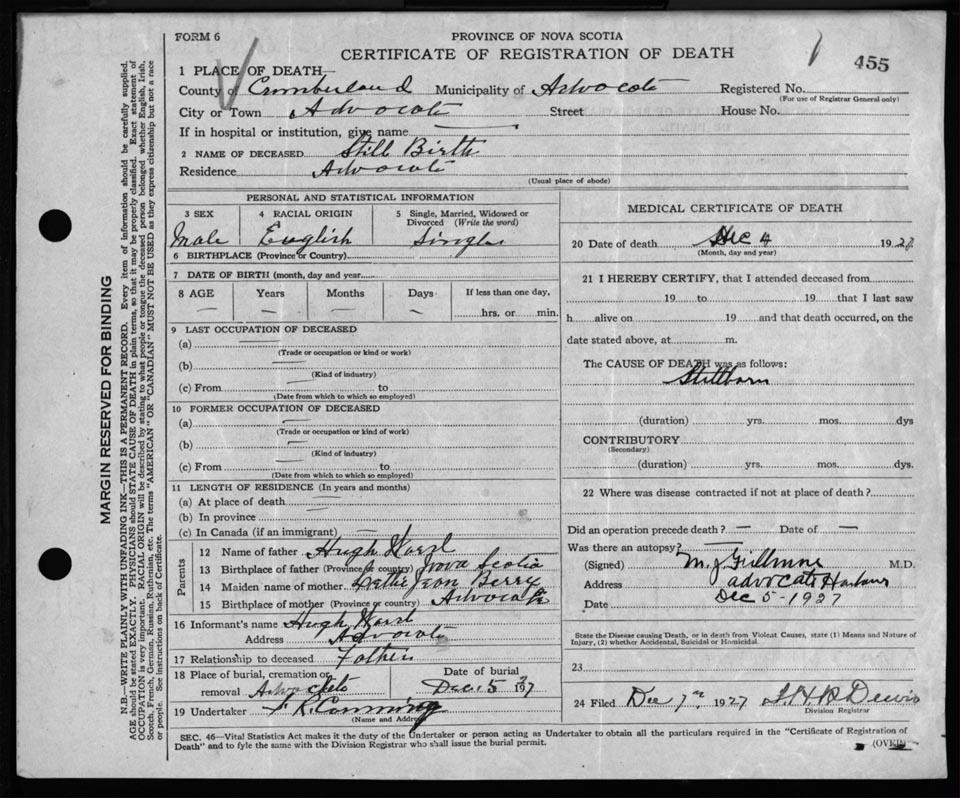 FORM 6
PROVINCE OF NOVA SCOTIA
CERTIFICATE OF REGISTRATION OF DEATH
455
1 PLACE OF DEATH—
County of Cumberland Municipality of Advocate Registered No.
(For use of Registrar General only)
City or Town Advocate Street House No.
If in hospital or institution, give name
2 NAME OF DECEASED Still Birth
Residence Advocate
(Usual place of abode)
PERSONAL AND STATISTICAL INFORMATION
3 SEX 4 RACIAL ORIGIN 5 Single, Married, Widowed or Divorced (Write the word)
Male English Single
6 BIRTHPLACE (Province or Country)
7 DATE OF BIRTH (month, day and year)
8 AGE Years Months Days If less than one day,
— — — hrs. or min.
9 LAST OCCUPATION OF DECEASED
(a) —
(Trade or occupation or kind or work)
(b) —
(Kind of industry)
(c) From — to
(Date from which to which so employed)
10 FORMER OCCUPATION OF DECEASED
(a) —
(Trade or occupation or kind of work)
(b) —
(Kind of industry)
(c) From — to
(Date from which to which so employed)
11 LENGTH OF RESIDENCE (In years and months)
(a) At place of death —
(b) In province —
(c) In Canada (if an immigrant) —
Parents
12 Name of father Hugh
13 Birthplace of father (Province or country) Nova Scotia
14 Maiden name of mother Jean Berry
15 Birthplace of mother (Province or country) Advocate
16 Informant's name Hugh
Address Advocate
17 Relationship to deceased Father
18 Place of burial, cremation or removal Advocate
Date of burial Dec. 5 1927
19 Undertaker
(Name and Address)
MEDICAL CERTIFICATE OF DEATH
20 Date of death Dec 4 1927
(Month, day and year)
21 I HEREBY CERTIFY, that I attended deceased from
19 to 19 that I last saw
h alive on 19 and that death occurred, on the
date stated above, at m.
The CAUSE OF DEATH was as follows:
Stillborn
(duration) yrs. mos. dys
CONTRIBUTORY
(Secondary)
(duration) yrs. mos. dys.
22 Where was disease contracted if not at place of death?
Did an operation precede death? — Date of —
Was there an autopsy? —
(Signed) M. J. Fillmore M.D.
Address Advocate Harbour
Date Dec 5-1927
State the Disease causing Death, or in death from Violent Causes, state (1) Means and Nature of
Injury, (2) whether Accidental, Suicidal or Homicidal.
23
24 Filed Dec 7th 1927 Dewis
Division Registrar
SEC. 46—Vital Statistics Act makes it the duty of the Undertaker or person acting as Undertaker to obtain all the particulars required in the "Certificate of Registration of
Death" and to fyle the same with the Division Registrar who shall issue the burial permit.
(OVER)
MARGIN RESERVED FOR BINDING
N.B.—WRITE PLAINLY WITH UNFADING INK—THIS IS A PERMANENT RECORD. Every item of information should be carefully supplied.
AGE should be stated EXACTLY. PHYSICIANS should STATE CAUSE OF DEATH in plain terms, so that it may be properly classified. Exact statement of
OCCUPATION is very important. RACIAL ORIGIN will be described by stating to what people or tongue the deceased person belonged whether English, Irish,
Scotch, French, German, Russian, Ruthenian, etc. The terms "AMERICAN" OR "CANADIAN" MUST NOT BE USED as they express citizenship but not a race
or people. See instructions on back of Certificate.